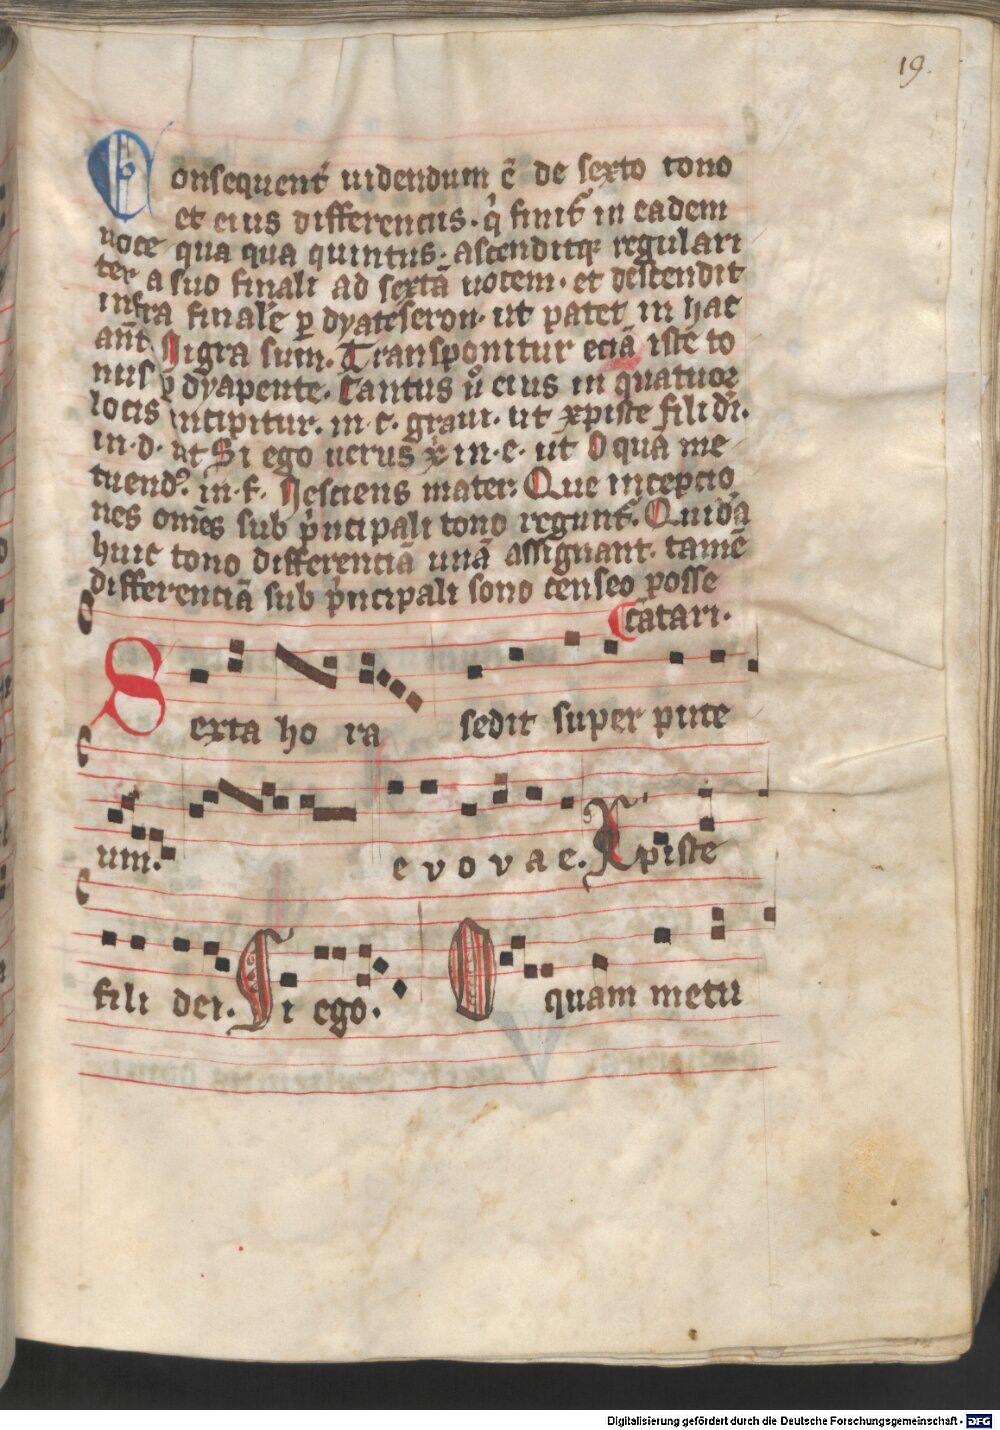 19.
Consequent̄ uidendum ē de sexto tono
et eius differencus. q̇ finit᷒ in eadem
uoce qua qua quintus. ascenditqꝫ regulari
ter a suo finali ad sextā uocem. et descendit
infra finalē ꝑ dyateseron. ut patet in hac
an̄t Nigra sum. Transponitur eciā iste to
nus ꝑ dyapente. Cantus u̾ eius in quatuor
locis incipitur. in .c. graui. ut xpiste fili di̾.
in .d. ut Si ego uerus x̾ in .e. ut O quā me
tuend᷒. in .f. Nesciens mater. Que incepcio
nes om̄es sub p̾ncipali tono regunt᷒. Quidā
huic tono differenciā unā assignant. tamē
differenciā sub p̾ncipali sono censeo posse
ctatari.
Sexta ho ra sedit super pute
um. e v o v a e. Xpiste
fili dei. Si ego. O quam metu
Digitalisierung gefördert durch die Deutsche Forschungsgemeinschaft - DFG